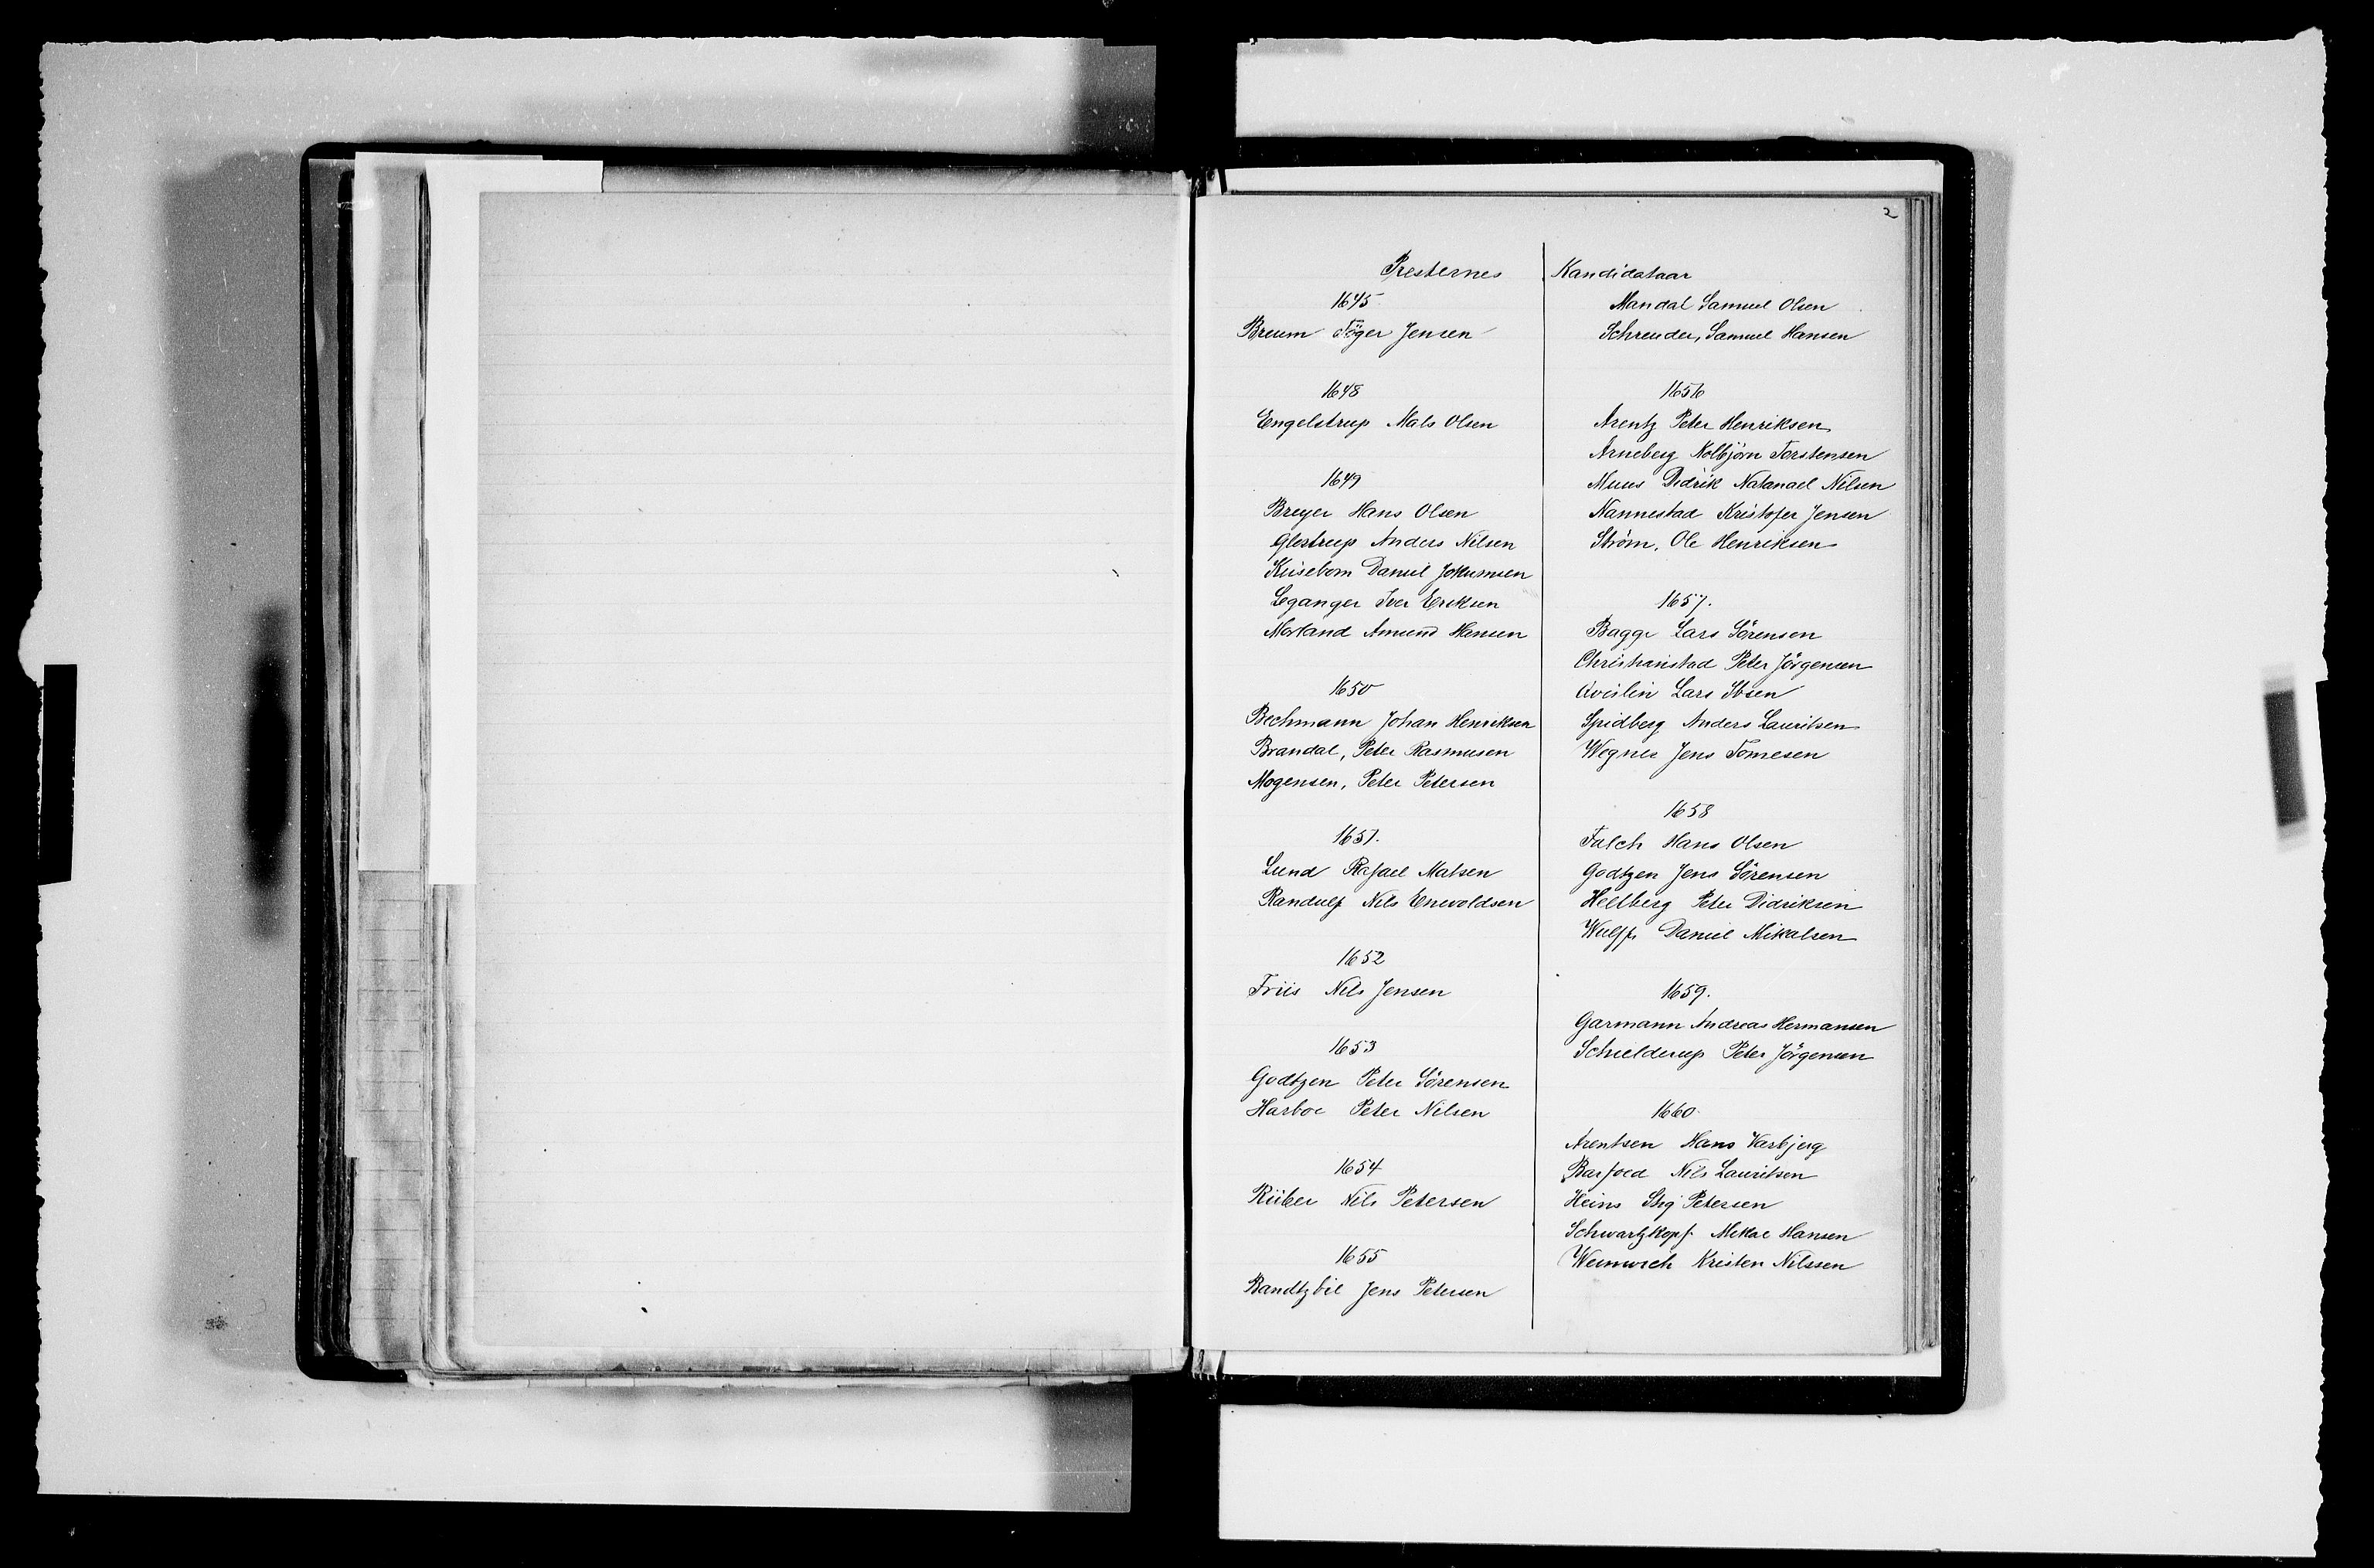 2
Presternes Kandidataar
1645
Breum Töger Jensen
1648
Engelstrup Mats Olsen
1649
Breyer Hans Olsen
Glostrup Anders Nilsen
Daniel Jokumsen
Leganger Iver Eriksen
Morland Amund Hansen
1650
Bechmann Johan Henriksen
Brandal, Peter Rasmusen
Mogensen, Peter Petersen
1651.
Lund Rafael Matsen
Randulf Nils Enevoldsen
1652
Friis Nils Jensen
1653
Godtzen Peter Sörensen
Harboe Peter Nilsen
1654
Rüber Nils Petersen
1655
Bandtzbil Jens Petersen
Mandal Samuel Olsen
Schreuder, Samuel Hansen
1656
Arentz Peter Henriksen
Arneberg Kolbjörn Torstensen
Muus Didrik Natanael Nilsen
Nannestad Kristofer Jensen
Ström, Ole Henriksen
1657.
Bagge Lars Sörensen
Christianstad Peter Jörgensen
Qvislin Lars Ibsen
Spidberg Anders Lauritsen
Wegner Jens Tomesen
1658
Falch Hans Olsen
Godtzen Jens Sörensen
Hellberg Peter Didriksen
Wulff Daniel Mikalsen
1659.
Garmann Andreas Hermansen
Schielderup Peter Jörgensen
1660.
Arentsen Hans Varbjerg
Barfoed Nils Lauritsen
Heins Stig Petersen
Schwartzkopf Mikae Hansen
Weinwich Kristen Nilssen